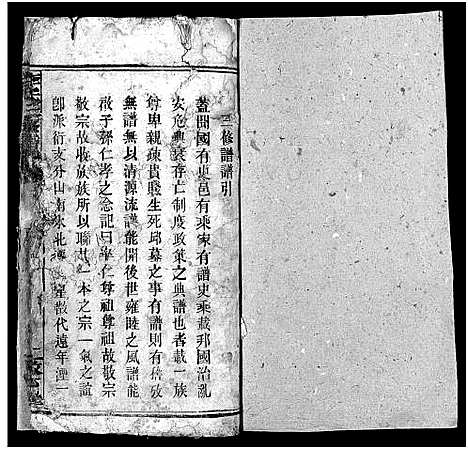 三修譜譜引
蓋聞國有史邑有乘家有譜史乘載邦國治亂
安危興衰存亡制度政葉之典譜也者載一族
尊卑親疎貴賤生死邱墓之事有譜則有稽攷
無譜無以清源流譜能開後世雍睦之風譜能
啟子孫仁孝之念記曰率仁尊祖尊祖故敬宗
敬宗故收族族所以聯其一本之宗一氣之誼
卽派衍支分山南水北
星散代遠年湮